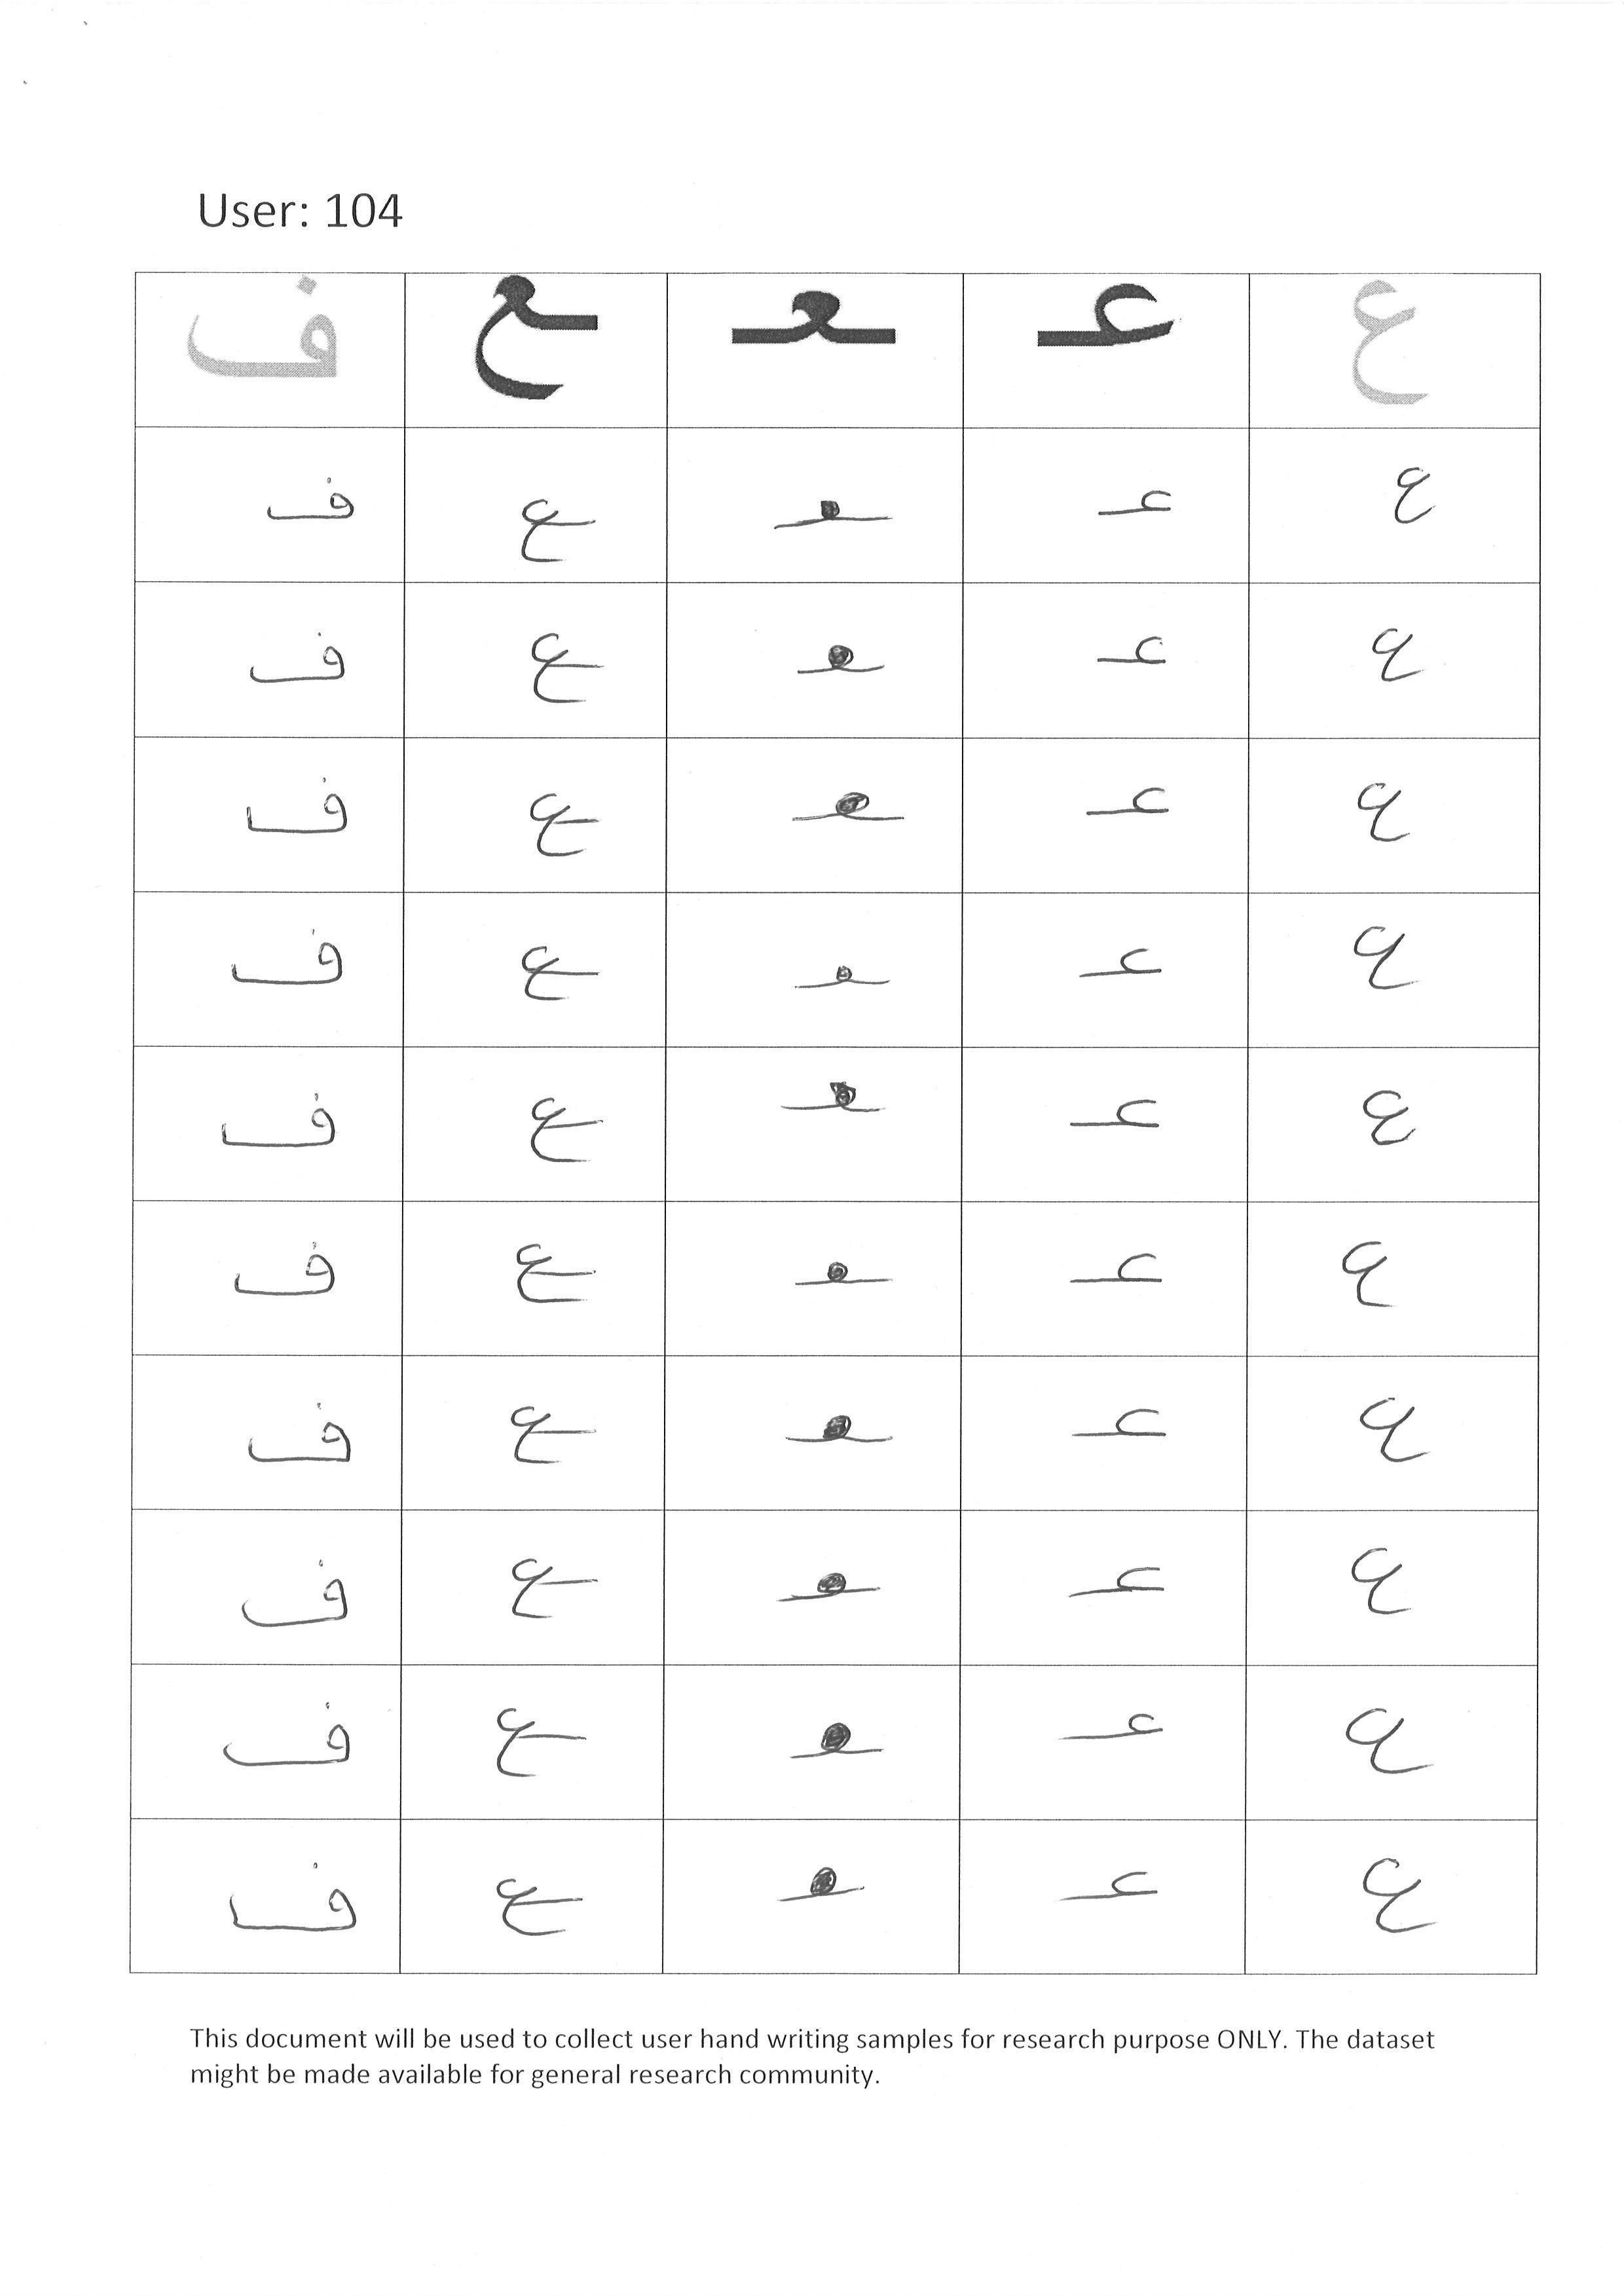 User: 104
ع عـ ـعـ ـع ف
ع عـ ـعـ ـع ف
ع عـ ـعـ ـع ف
ع عـ ـعـ ـع ف
ع عـ ـعـ ـع ف
ع عـ ـعـ ـع ف
ع عـ ـعـ ـع ف
ع عـ ـعـ ـع ف
ع عـ ـعـ ـع ف
ع عـ ـعـ ـع ف
ع عـ ـعـ ـع ف
This document will be used to collect user hand writing samples for research purpose ONLY. The dataset
might be made available for general research community.